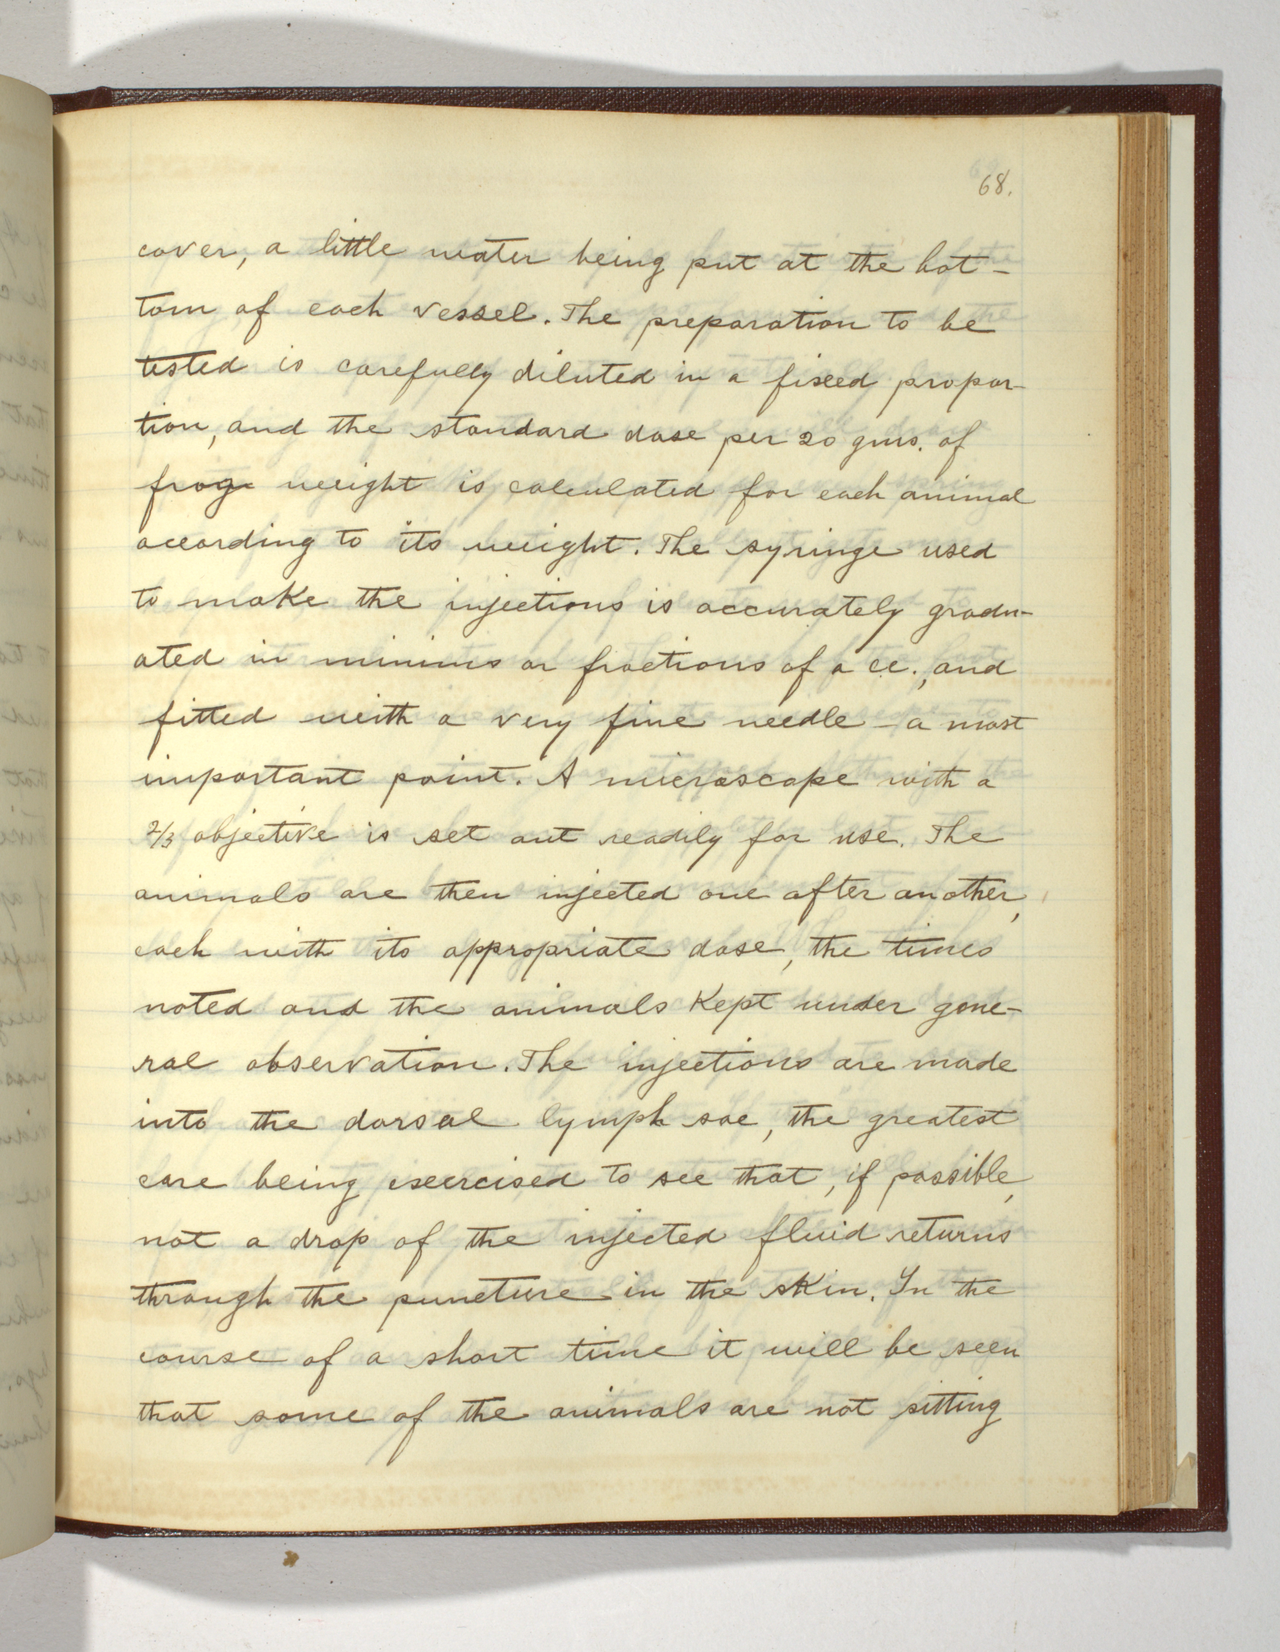 68.
cover, a little water being put at the bot-
tom of each vessel. The preparation to be
tested is carefully diluted in a fixed propor-
tion, and the standard dose per 20 gms. of
frog weight is calculated for each animal
according to its weight. The syringe used
to make the injections is accurately gradu-
ated in minims or fractions of a cc., and
fitted with a very fine needle - a most
important point. A microscope with a
2/3 objective is set out readily for use. The
animals are then injected one after another,
each with its appropriate dose, the times
noted and the animals kept under gene-
ral observation. The injections are made
into the dorsal lymph sac, the greatest
care being exercised to see that, if possible,
not a drop of the injected fluid returns
through the puncture in the skin. In the
course of a short time it will be seen
that some of the animals are not sitting